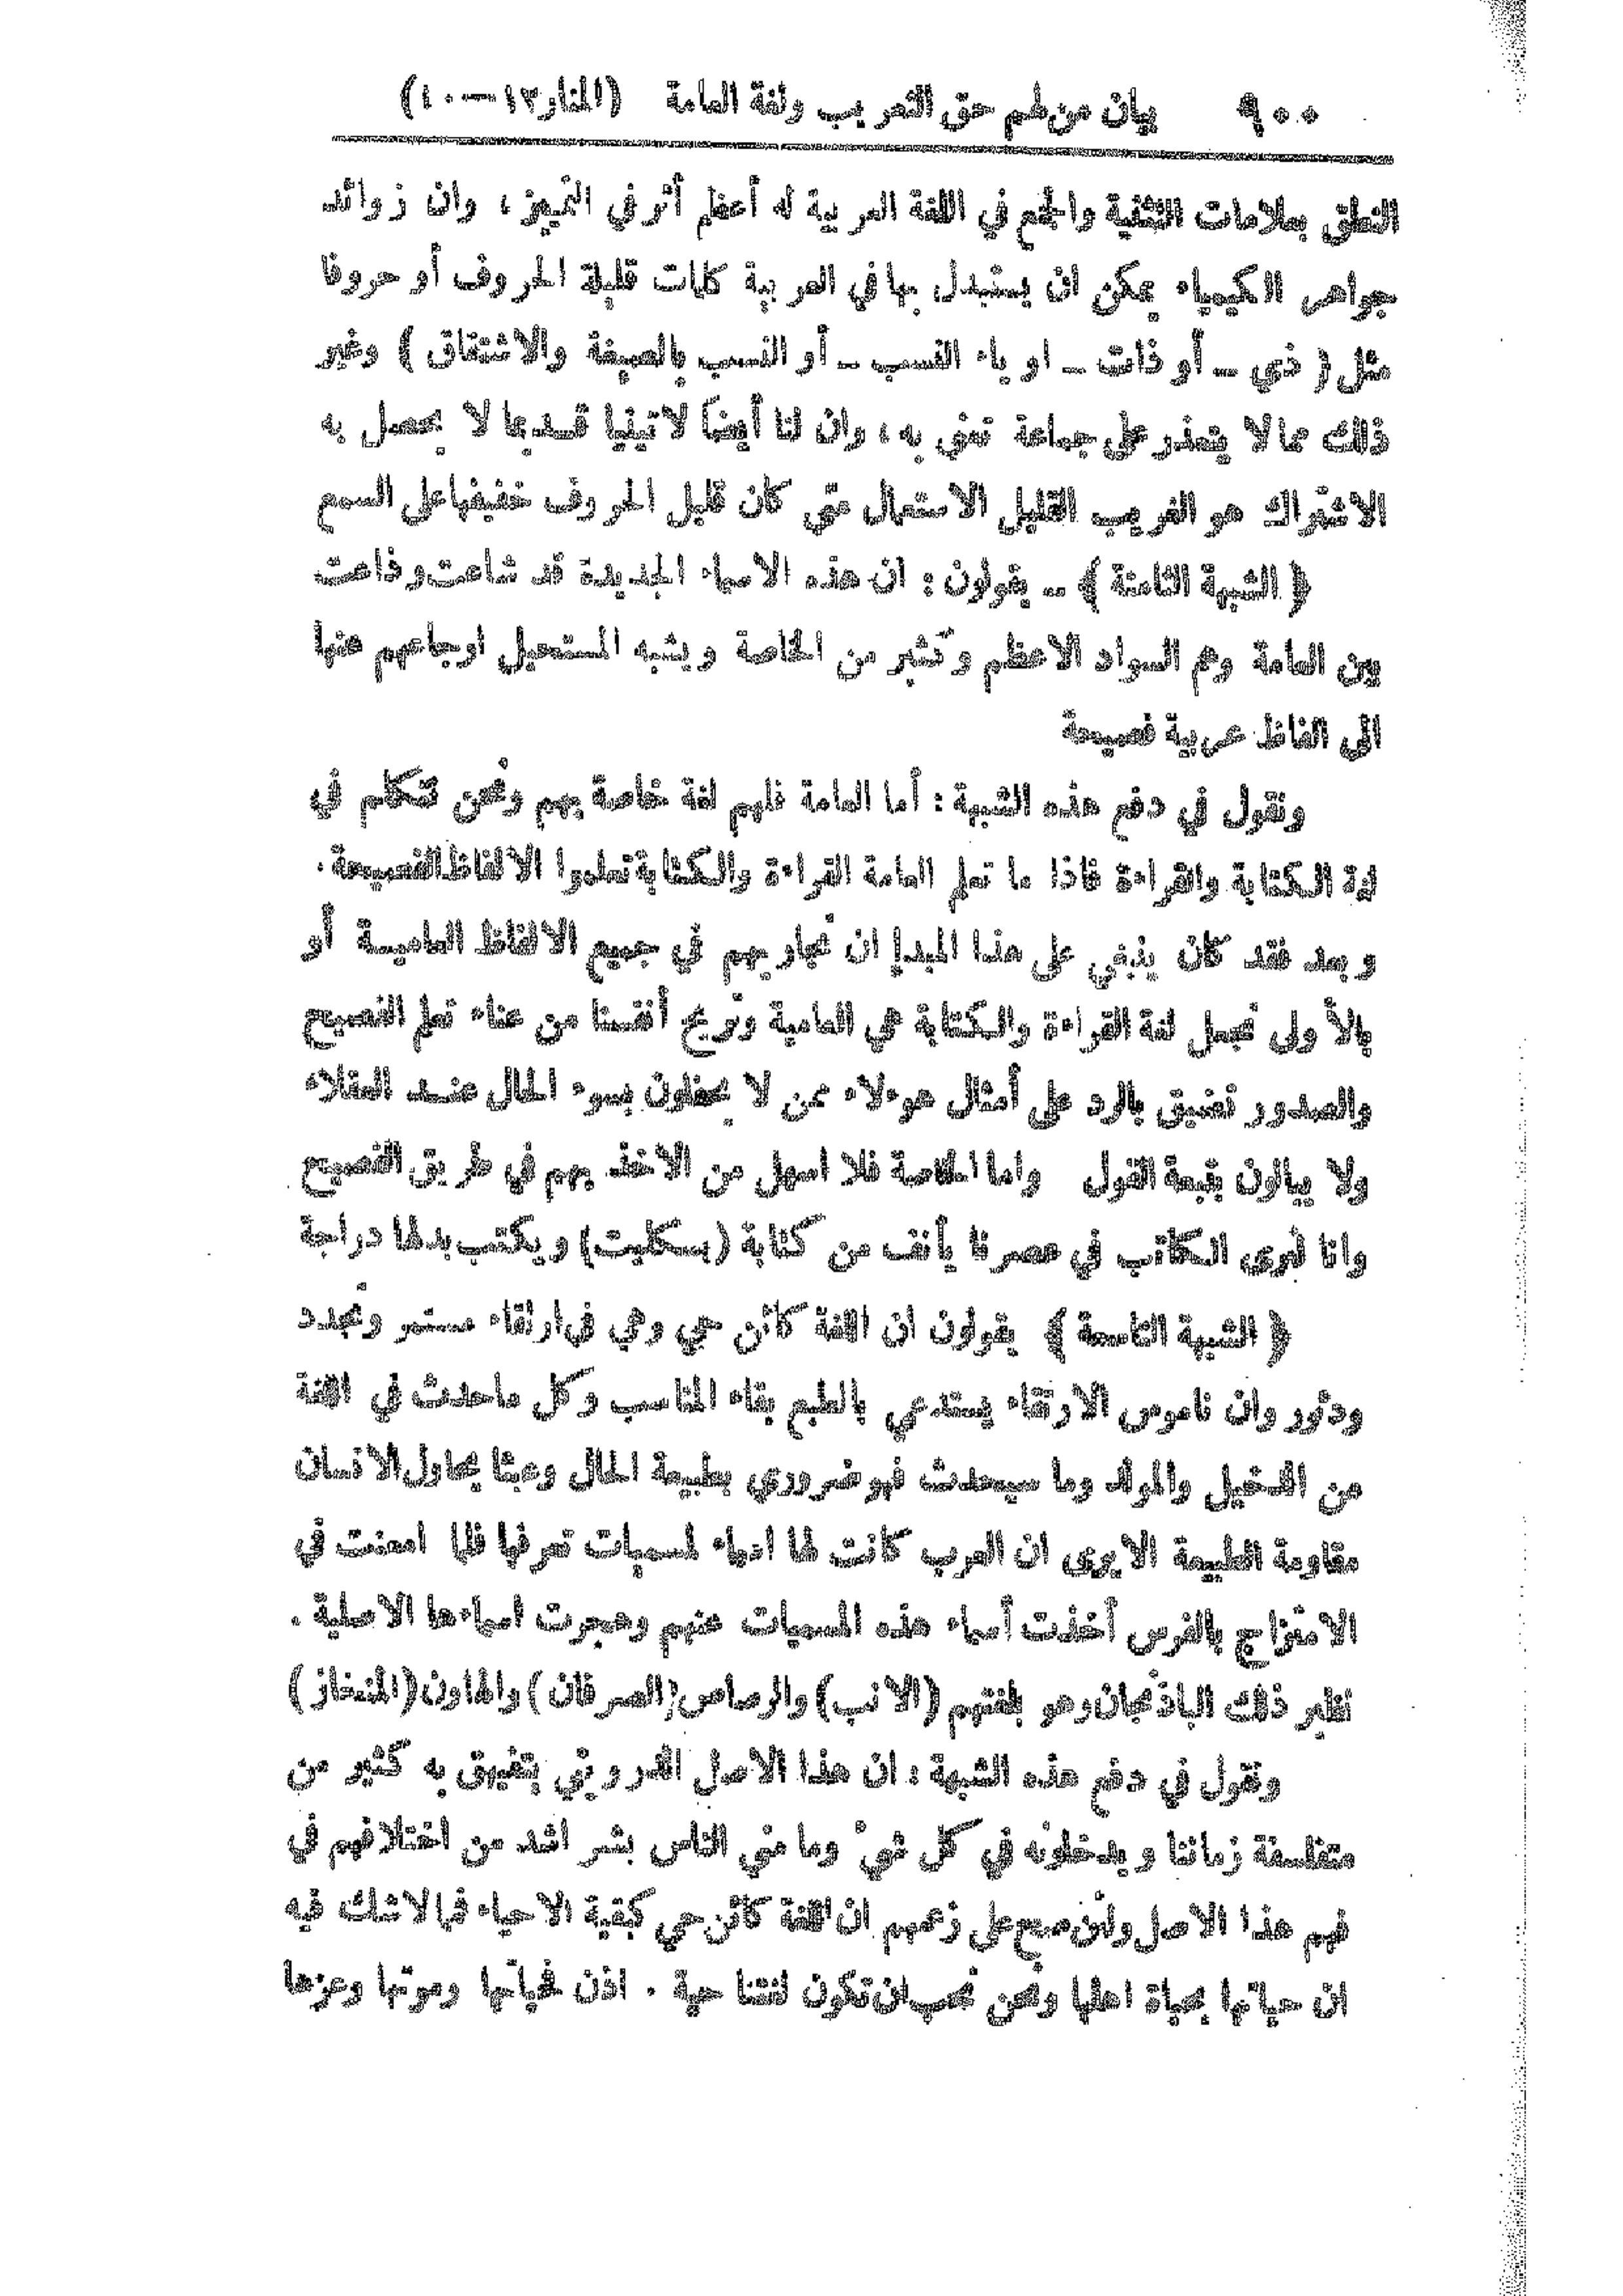 ٩٠٠ بيان من لهم حق التعريب ولغة العامة (المنار ١٢—١٠)
النطق بعلامات التثنية والجمع في اللغة العربية له أعظم أثر في التمييز، وان زوائد
جواهر الكيمياء يمكن ان يستبدل بها في العربية كلمات قليلة الحروف أو حروفا
مثل (ذي — أو ذات — او ياء النسب — أو النسب بالصيغة والاشتقاق) وغير
ذلك مما لا يتعذر على جماعة تعنى به، وان لنا أيضاً لاتينيا قديما لا يحصل به
الاشتراك هو الغريب القليل الاستعمال متى كان قليل الحروف خفيفها على السمع
﴿ الشبهة الثامنة ﴾ — يقولون: ان هذه الاسماء الجديدة قد شاعت وذاعت
بين العامة وهم السواد الاعظم وكثير من الخاصة ويشبه المستحيل ارجاعهم عنها
الى الفاظ عربية فصيحة
ونقول في دفع هذه الشبهة: أما العامة فلهم لغة خاصة بهم ونحن نتكلم في
لغة الكتابة والقراءة فاذا ما تعلم العامة القراءة والكتابة تعلموا الالفاظ الفصيحة.
وبعد فقد كان ينبغي على هذا المبدإ ان نجاريهم في جميع الالفاظ العامية أو
بالأولى نجعل لغة القراءة والكتابة هي العامية ونريح أنفسنا من عناء تعلم الفصيح
والصدور تضيق بالرد على أمثال هؤلاء ممن لا يحفلون بسوء الحال عند العقلاء
ولا يبالون بتبعة القول واما الخاصة فلا اسهل من الاخذ بهم في طريق الفصيح
وانا لنرى الكاتب في عصرنا يأنف من كتابة (بسكليت) ويكتب بدلها دراجة
﴿ الشبهة التاسعة ﴾ يقولون ان اللغة كائن حي وهي في ارتقاء مستمر وتجدد
ودثور وان ناموس الارتقاء يستدعي بالطبع بقاء المناسب وكل ما حدث في اللغة
من الدخيل والمولد وما سيحدث فهو ضروري بطبيعة الحال وعبثا يحاول الانسان
مقاومة الطبيعة الا يرى ان العرب كانت لها اسماء لمسميات تعرفها فلما امعنت في
الامتزاج بالفرس أخذت أسماء هذه المسميات عنهم وهجرت اسماءها الاصلية.
نظير ذلك الباذنجان وهو بلغتهم (الانب) والرصاص (الصرفان) والهاون (المنحاز)
ونقول في دفع هذه الشبهة: ان هذا الاصل الدرويني يتفيهق به كثير من
متفلسفة زماننا ويدخلونه في كل شيء وما مني الناس بشر اشد من اختلافهم في
فهم هذا الاصل ولئن صح على زعمهم ان اللغة كائن حي كبقية الاحياء فما لا شك فيه
ان حياتها بحياة اهلها ونحن نحب ان تكون لغتنا حية. اذن فحياتها وموتها وعزها